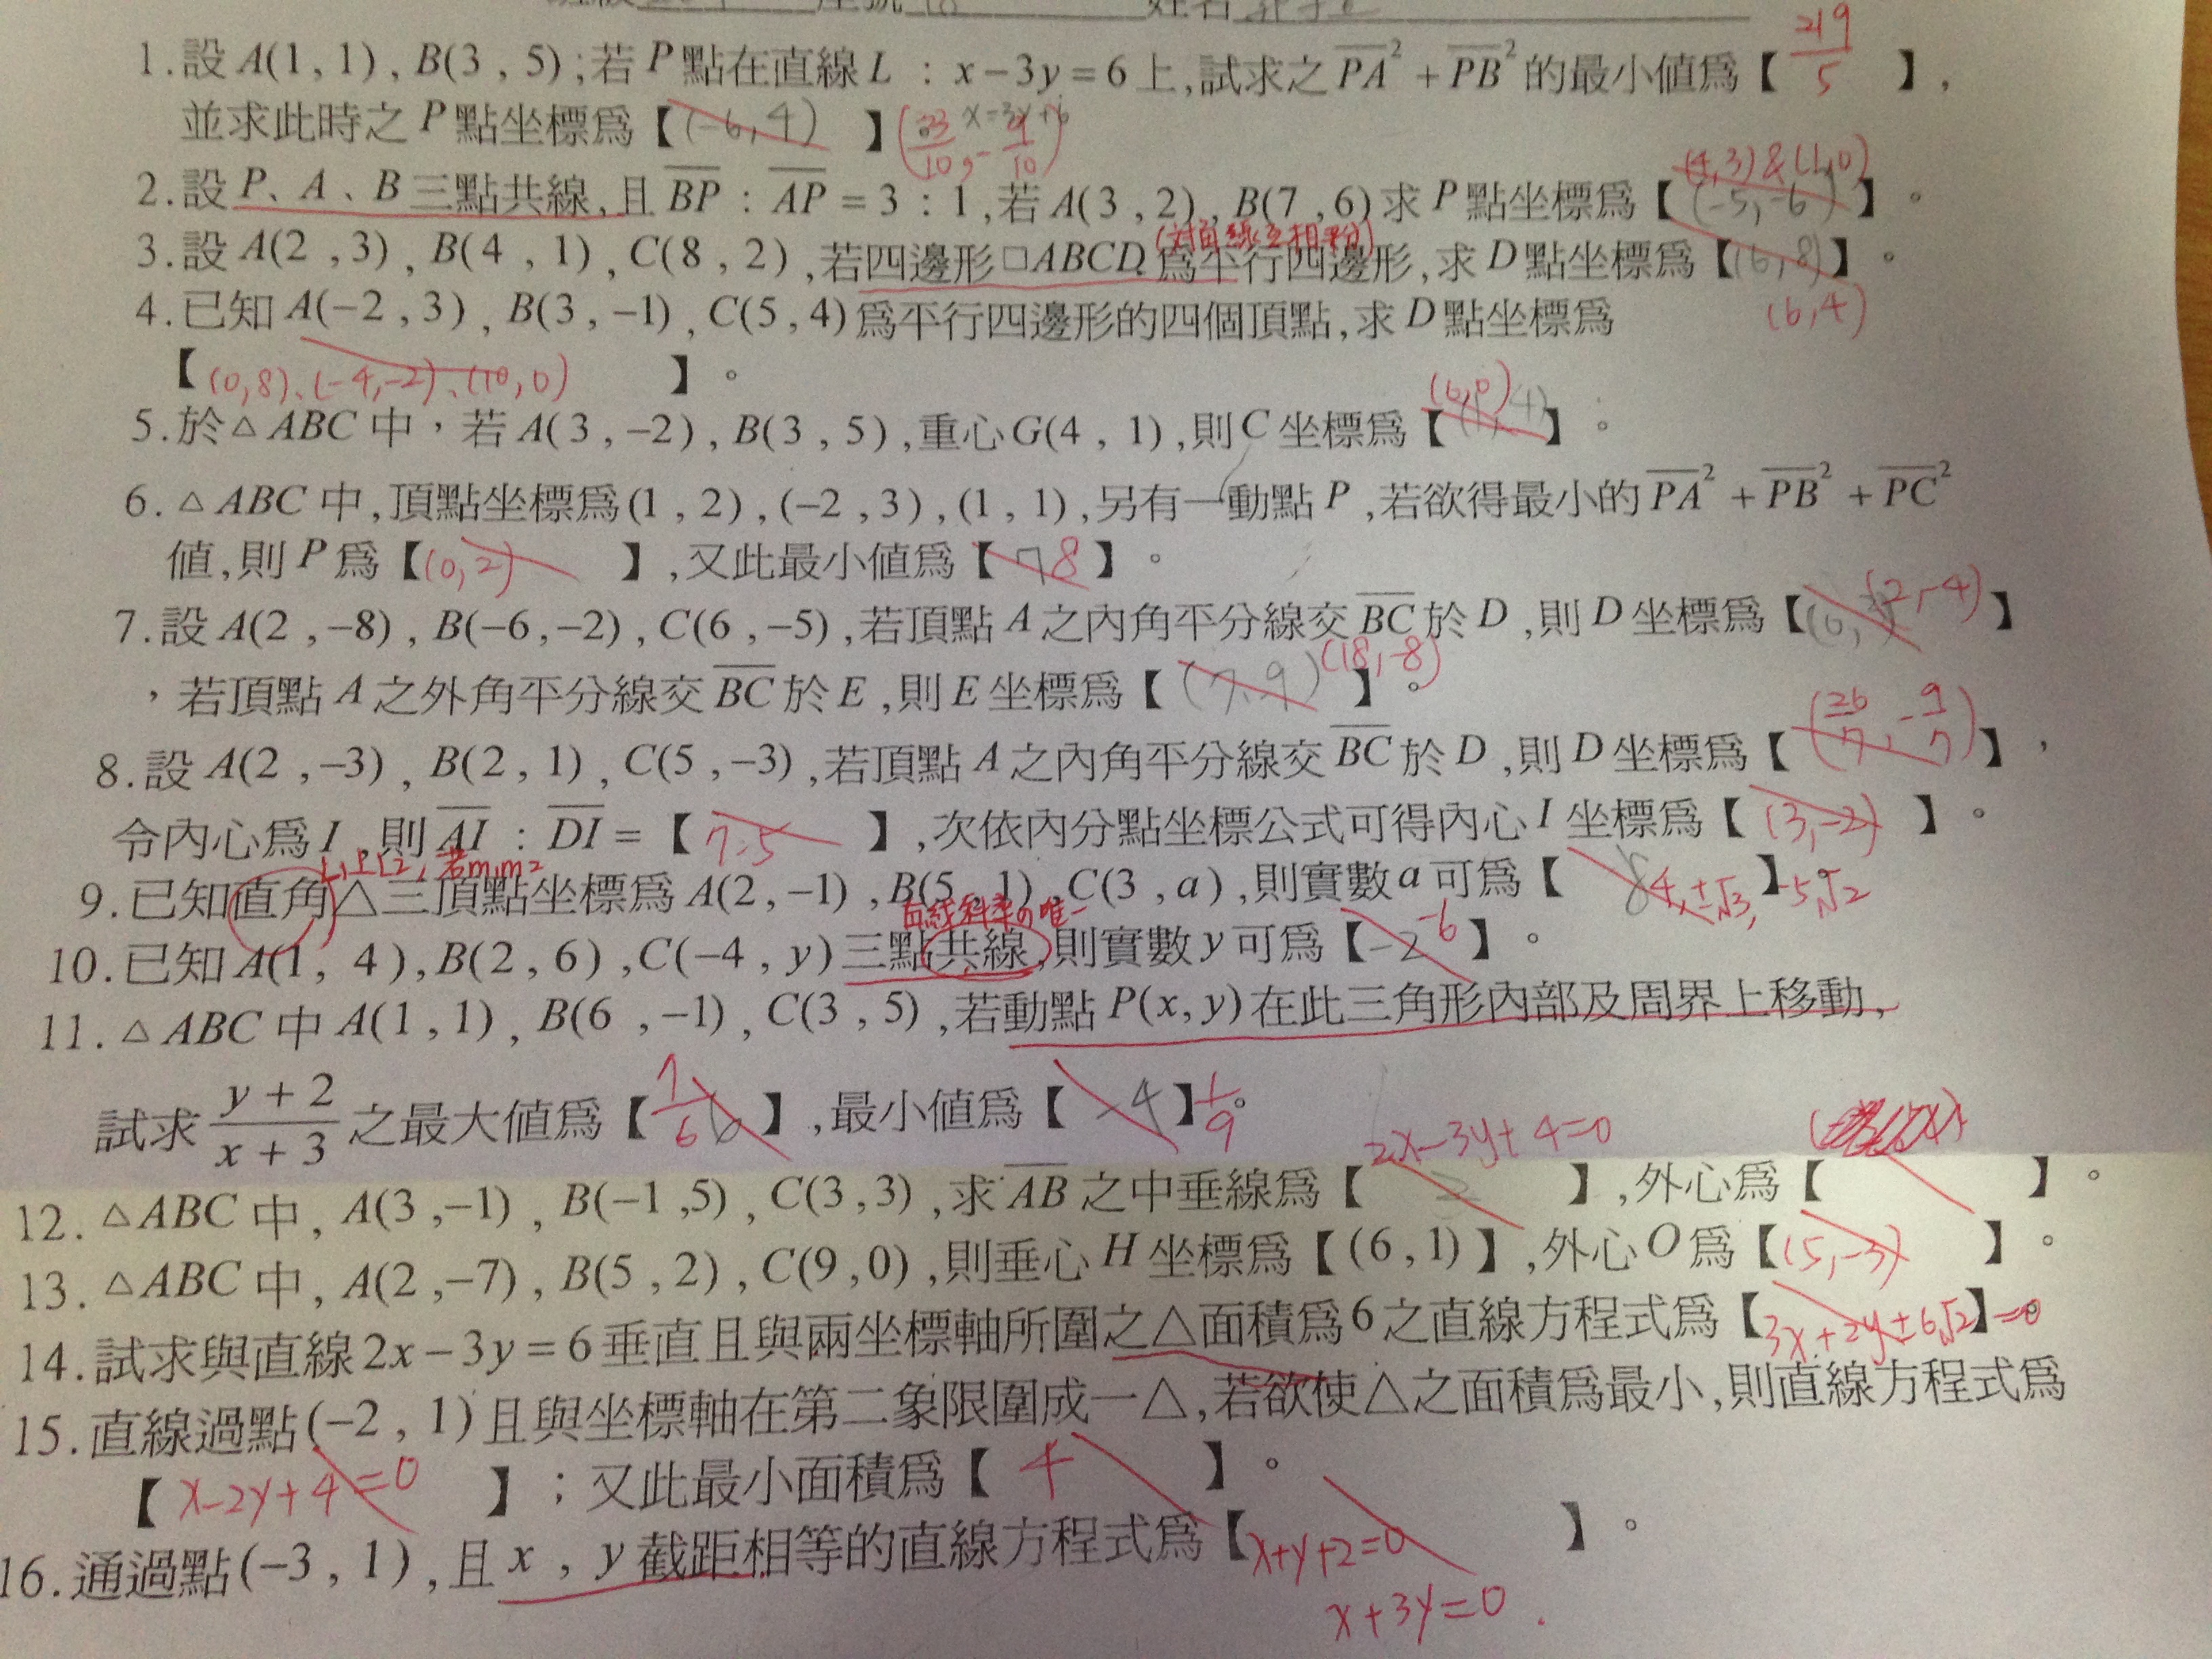 1.設A(1 , 1) , B(3 , 5);若P點在直線L : x−3y=6上,試求之PA²+PB²的最小值爲【 219/5 】,
並求此時之P點坐標爲【(-6,4) 】(33/10, -9/10) x=3y+6
2.設P、A、B三點共線,且BP : AP = 3 : 1,若A(3 , 2) , B(7 , 6)求P點坐標爲【(-5,-6)】。(4,3)&(1,0)
3.設A(2 , 3) , B(4 , 1) , C(8 , 2) ,若四邊形□ABCD爲平行四邊形,求D點坐標爲【(6,8)】。
(6,4)
4.已知A(−2 , 3) , B(3 , −1) , C(5 , 4)爲平行四邊形的四個頂點,求D點坐標爲
【(0,8)、(-4,-2)、(10,0) 】。
5.於△ABC中,若A(3 , −2) , B(3 , 5) ,重心G(4 , 1) ,則C坐標爲【(1,4)】。(6,0)
6.△ABC中,頂點坐標爲(1 , 2) , (−2 , 3) , (1 , 1) ,另有一動點P ,若欲得最小的PA²+PB²+PC²
值,則P爲【(0,2) 】,又此最小值爲【 8】。
7.設A(2 , −8) , B(−6 , −2) , C(6 , −5) ,若頂點A之內角平分線交BC於D ,則D坐標爲【(2,-4)】
,若頂點A之外角平分線交BC於E ,則E坐標爲【(7,9) 】。(18,-8)
8.設A(2 , −3) , B(2 , 1) , C(5 , −3) ,若頂點A之內角平分線交BC於D ,則D坐標爲【(26/7, -9/7)】,
令內心爲I ,則AI : DI = 【 7:5 】,次依內分點坐標公式可得內心I坐標爲【(3,-2) 】。
L1⊥L2, 若m1m2
9.已知直角△三頂點坐標爲A(2 , −1) , B(5 , 1) , C(3 , a) ,則實數a可爲【 8 4,±√3, 】-5,√2
直線斜率の唯一
10.已知A(1 , 4) , B(2 , 6) , C(−4 , y)三點共線,則實數y可爲【-2 -6】。
11.△ABC中A(1 , 1) , B(6 , −1) , C(3 , 5) ,若動點P(x, y)在此三角形內部及周界上移動,
試求(y+2)/(x+3)之最大值爲【7/6 】,最小值爲【 -4】1/9。
12.△ABC中, A(3 ,−1) , B(−1 ,5) , C(3 , 3) ,求AB之中垂線爲【2x-3y+4=0 】,外心爲【 】。
13.△ABC中, A(2 ,−7) , B(5 , 2) , C(9 , 0) ,則垂心H坐標爲【(6 , 1)】,外心O爲【(5,-3) 】。
14.試求與直線2x−3y=6垂直且與兩坐標軸所圍之△面積爲6之直線方程式爲【3x+2y±6√2】=0
15.直線過點(−2 , 1)且與坐標軸在第二象限圍成一△,若欲使△之面積爲最小,則直線方程式爲
【 x-2y+4=0 】;又此最小面積爲【 4 】。
16.通過點(−3 , 1) ,且x , y截距相等的直線方程式爲【x+y+2=0 】。
x+3y=0.